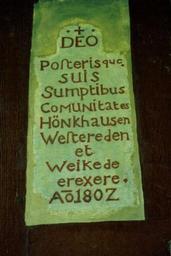 · + ·
DEO
Posterisque
suis
Sumptibus
Comunitates
Hönkhausen
Westereden
et
Weikede
erexere.
Ao 1802